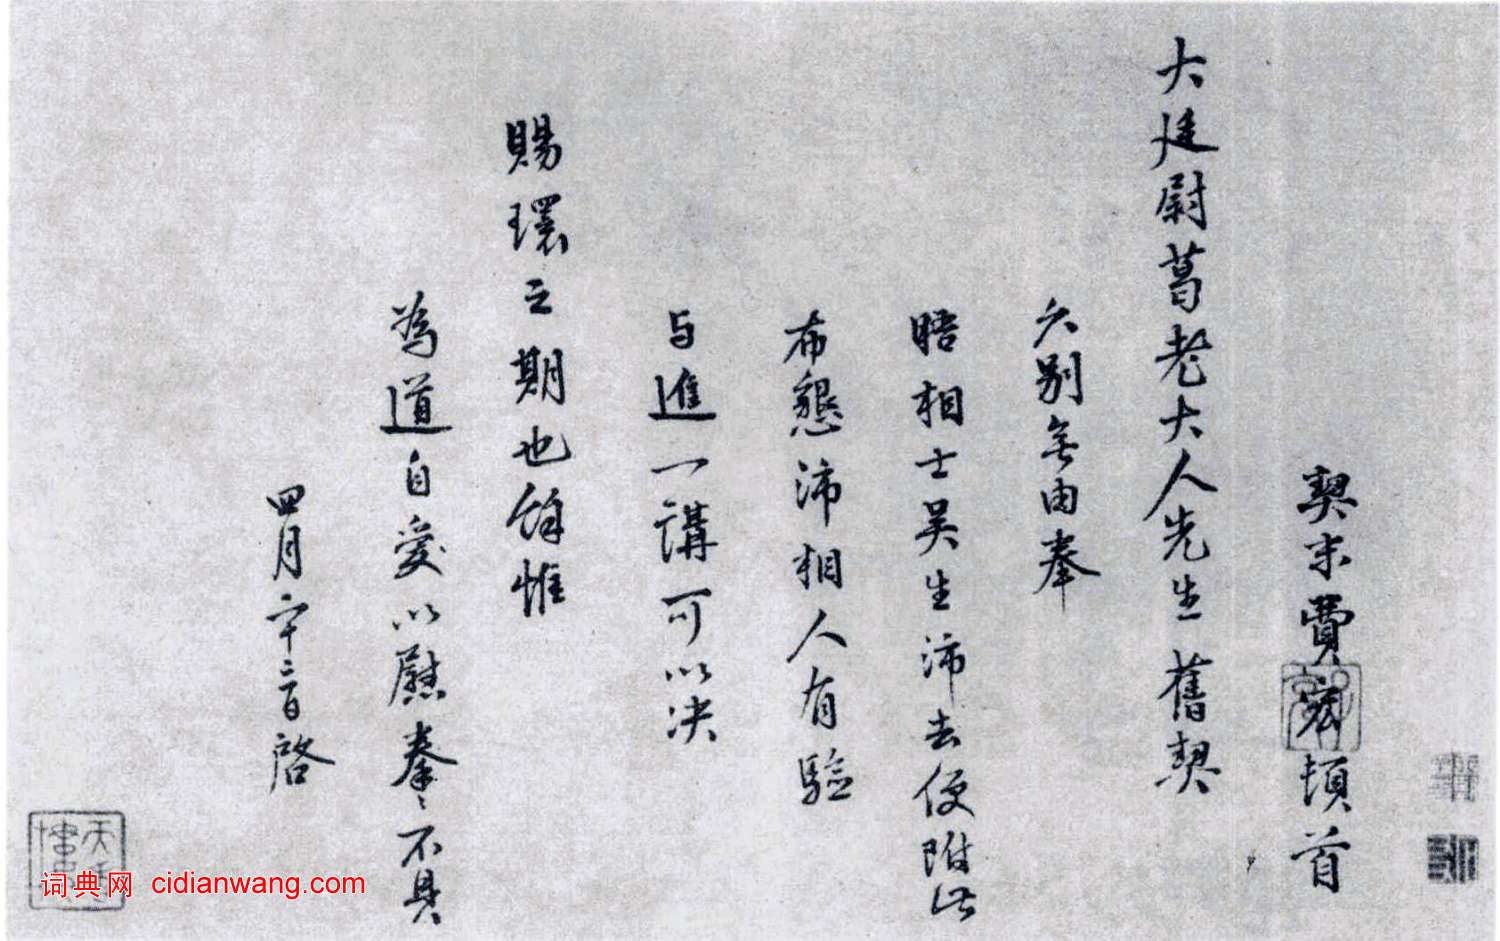 契末費宏頓首
大廷尉葛老大人先生舊契
久別無由奉
晤相士吴生沛去便附此
布懇沛相人有驗
与進一講可以决
賜環之期也餘惟
為道自愛以慰拳〻不具
四月二十二日啓
词典网 cidianwang.com